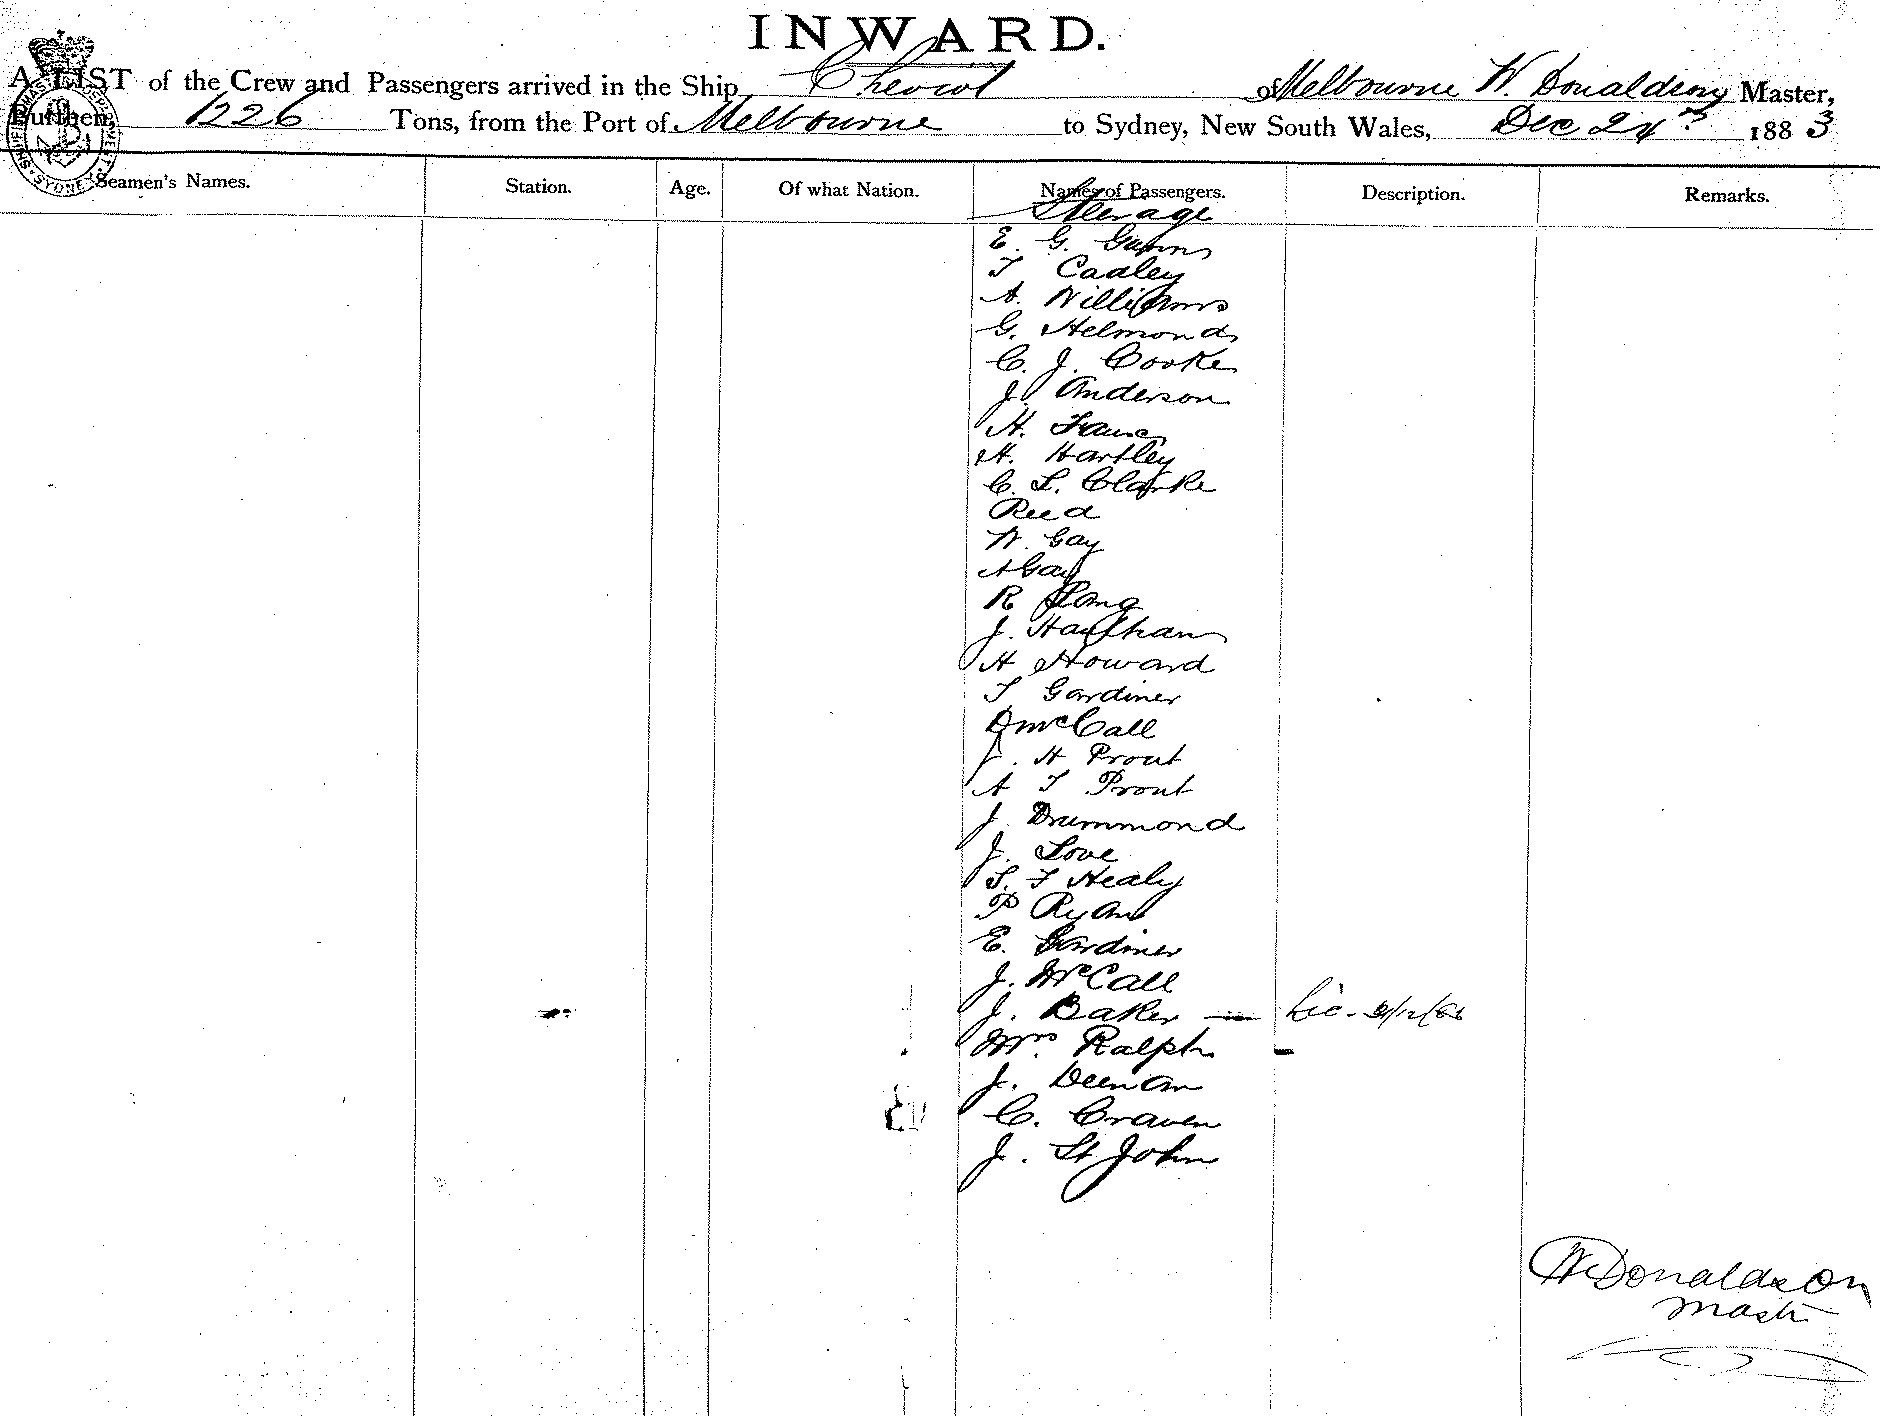 INWARD.
A LIST of the Crew and Passengers arrived in the Ship Cheviot of Melbourne W. Donaldson, Master,
Burthen 1226 Tons, from the Port of Melbourne to Sydney, New South Wales, Dec 24th 1883
Seamen's Names. Station. Age. Of what Nation. Names of Passengers. Description. Remarks.
SYDNEY
Steerage
E. G.
T Cadley
A. Williams
G. Helmond
C. J. Cooke
J. Anderson
H.
H. Hartley
C. L. Clarke
Reed
W. Gay
A Gay
R Long
J.
H Howard
T Gardiner
D McCall
J. H Prout
A T Prout
J Drummond
J. Love
S. F Healy
P Ryan
E. Gardiner
J. McCall
J. Baker —
Mrs. Ralph
J. Deenan
C. Craven
J. St John
W Donaldson
Master